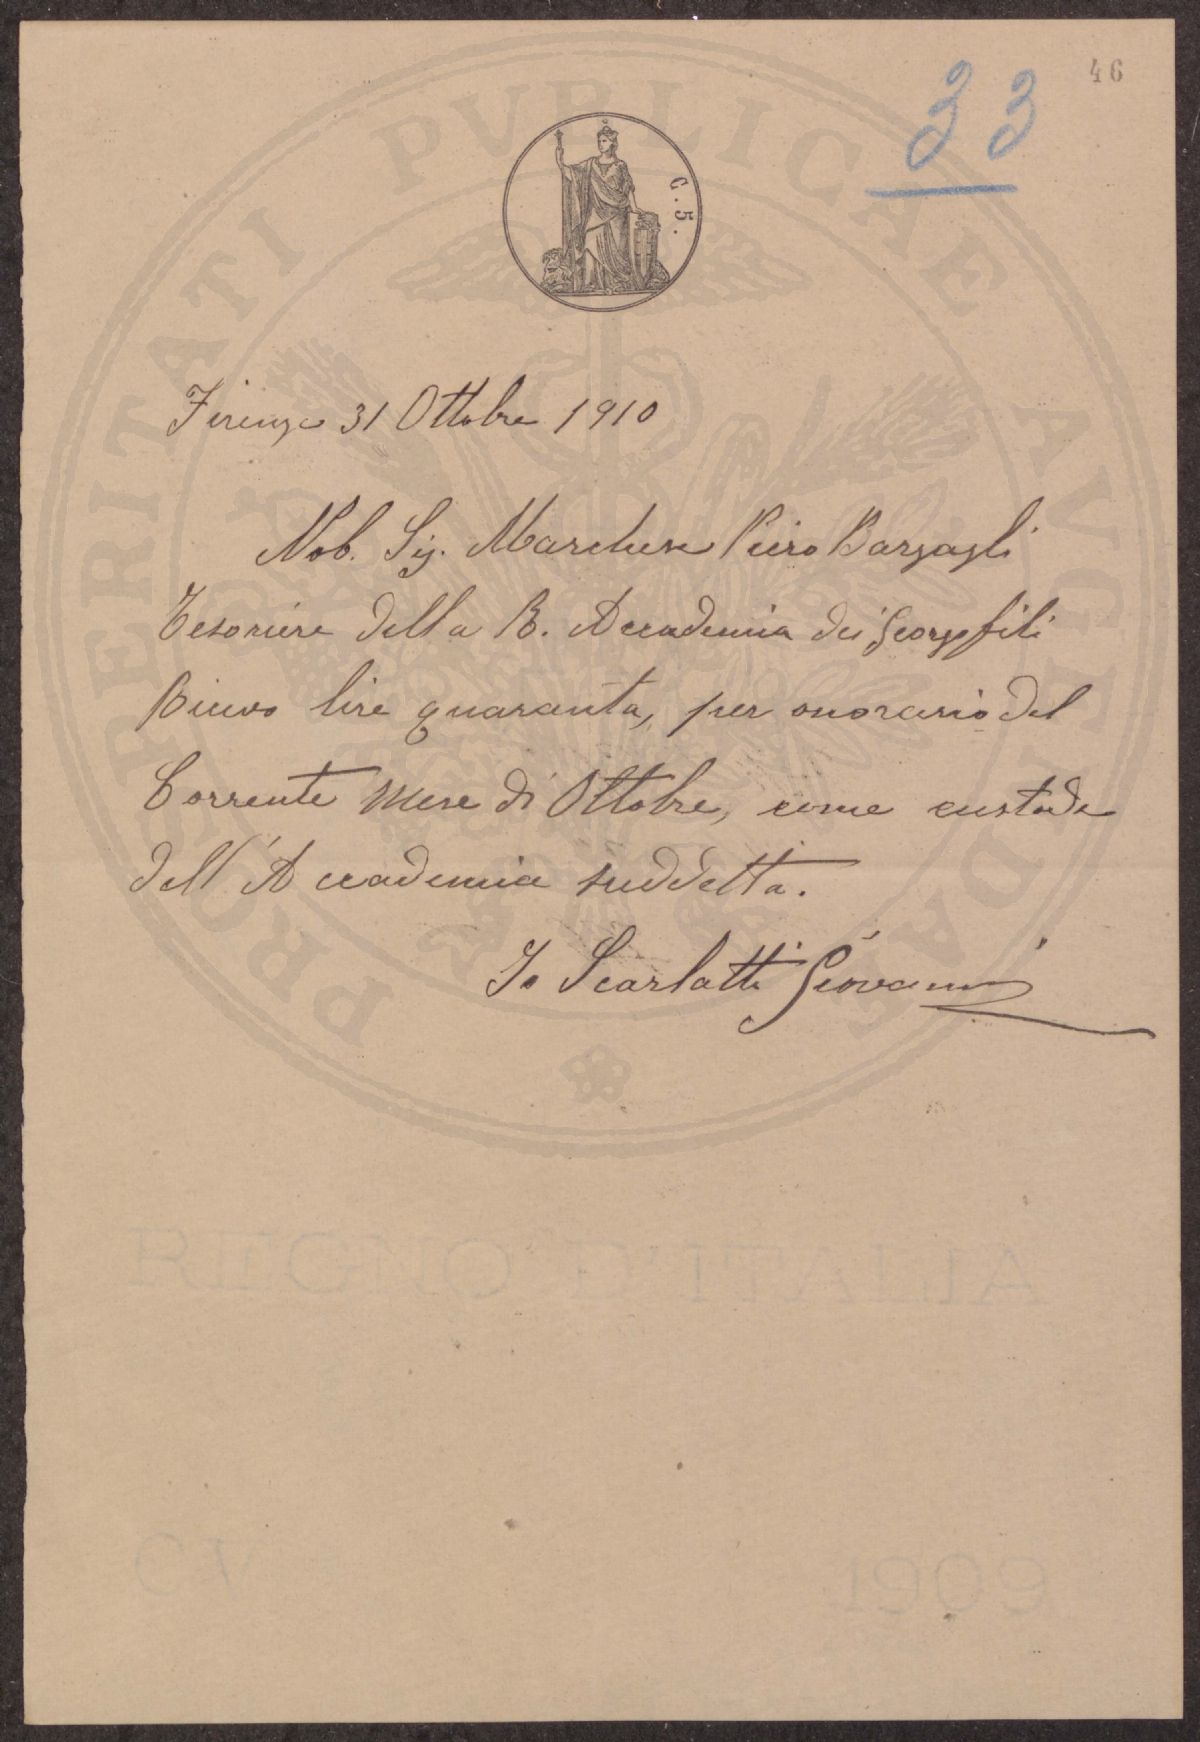 46
33
C. 5.
PROSPERITATI PVBLICAE AVGENDAE
Firenze 31 Ottobre 1910
Nob. Sig. Marchese Piero Bargagli
Tesoriere della R. Accademia dei Georgofili
Ricevo lire quaranta, per onorario del
Corrente mese di Ottobre, come custode
dell'Accademia suddetta.
Io Scarlatti Giovanni
REGNO D'ITALIA
CV 1909